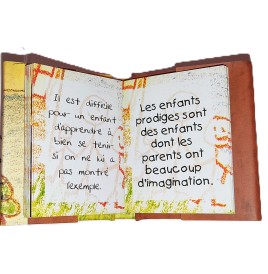 Il est difficile
pour un enfant
d'apprendre à
bien se tenir
si on ne lui a
pas montré
l'exemple.
Les enfants
prodiges sont
des enfants
dont les
parents ont
beaucoup
d'imagination.